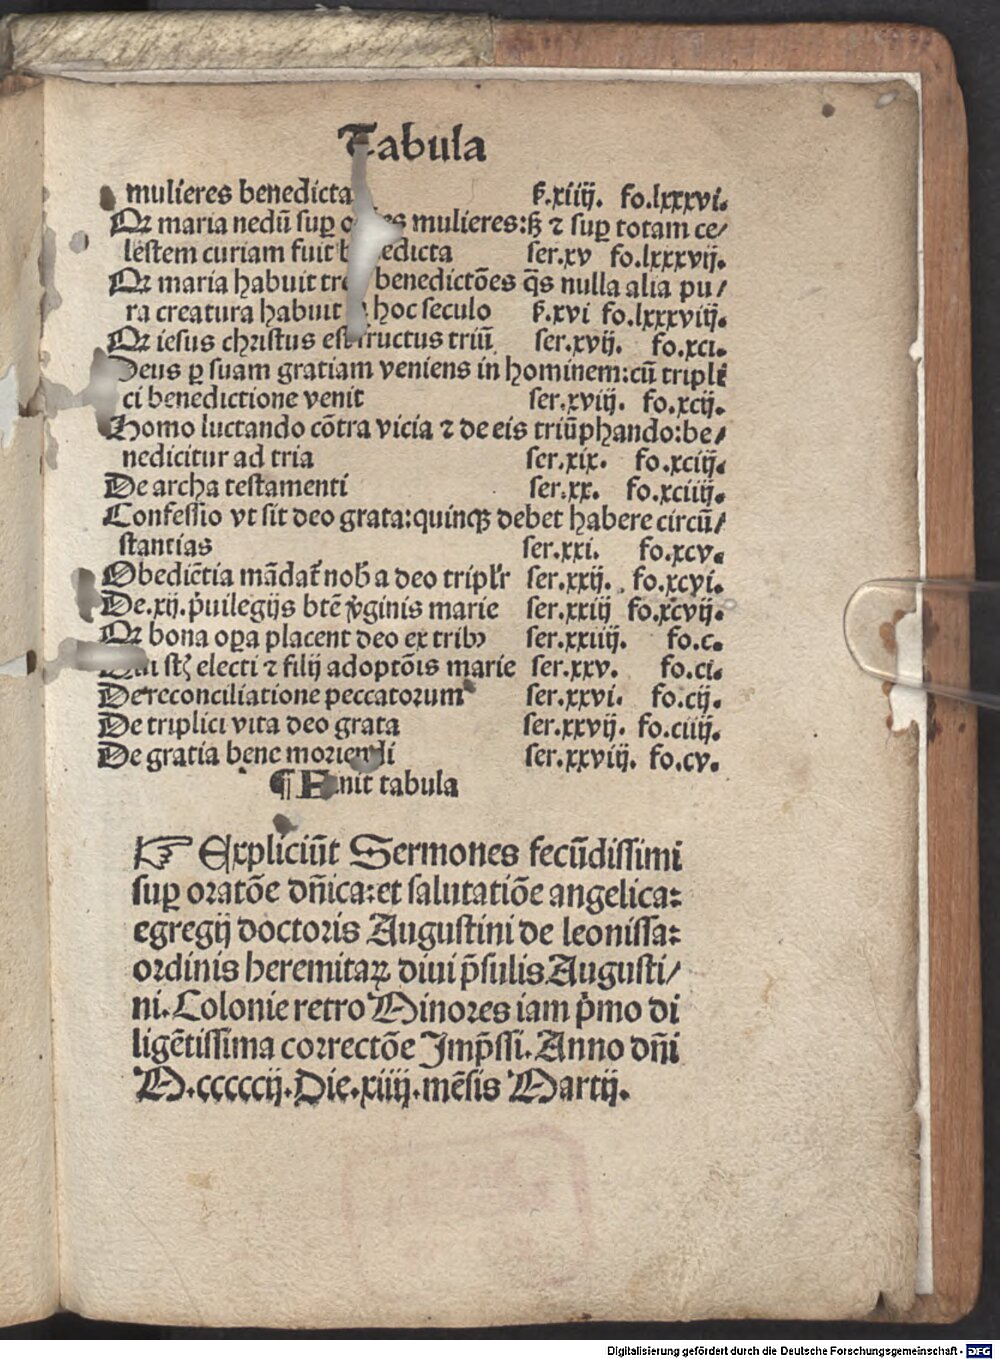 Tabula
mulieres benedicta ẜ.xiiij. fo.lxxxvi.
Qꝛ maria nedū suꝑ mulieres:ꝫ ⁊ suꝑ totam ce/
lestem curiam fuit benedicta ser.xv fo.lxxxvij.
Qꝛ maria habuit tres benedictōes q̄s nulla alia pu/
ra creatura habuit hoc seculo ẜ.xvi fo.lxxxviij.
Qꝛ iesus christus est fructus triū ser.xvij. fo.xci.
Deus ꝑ suam gratiam veniens in hominem:cū tripli
ci benedictione venit ser.xviij. fo.xcij.
Homo luctando cōtra vicia ⁊ de eis triūphando:be/
nedicitur ad tria ser.xix. fo.xciij.
De archa testamenti ser.xx. fo.xciiij.
Confessio vt sit deo grata:quinqꝫ debet habere circū/
stantias ser.xxi. fo.xcv.
Obediētia mādat nob̄ a deo tripl'r ser.xxij. fo.xcvi.
De.xij. p̄uilegijs btē v̄ginis marie ser.xxiij fo.xcvij.
Qꝛ bona oꝑa placent deo ex tribꝰ ser.xxiiij. fo.c.
Qui st̄ electi ⁊ filij adoptōis marie ser.xxv. fo.ci.
De reconciliatione peccatorum ser.xxvi. fo.cij.
De triplici vita deo grata ser.xxvij. fo.ciiij.
De gratia bene moriendi ser.xxviij. fo.cv.
¶ Finit tabula
☞ Expliciūt Sermones fecūdissimi
suꝑ oratōe dn̄ica:et salutatiōe angelica:
egregij doctoris Augustini de leonissa:
ordinis heremitaꝝ diui p̄sulis Augusti/
ni. Colonie retro Minores iam p̄mo di
ligētissima correctōe Imp̄ssi. Anno dn̄i
M.cccccij. Die.xiiij. mēsis Martij.
Digitalisierung gefördert durch die Deutsche Forschungsgemeinschaft - DFG